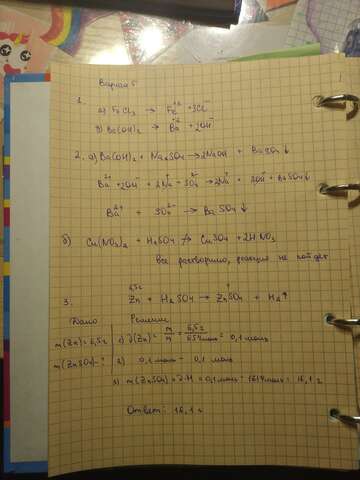 Вариант 5
1.
а) FeCl3 → Fe+3 + 3Cl-
б) Ba(OH)2 → Ba+2 + 2OH-
2. а) Ba(OH)2 + Na2SO4 → 2NaOH + BaSO4↓
Ba2+ + 2OH- + 2Na+ + SO4 2- → 2Na+ + 2OH- + BaSO4↓
Ba2+ + SO4 2- → BaSO4↓
б) Cu(NO3)2 + H2SO4 ↛ CuSO4 + 2HNO3
все растворимо, реакция не пойдет
6,5г
3. Zn + H2SO4 → ZnSO4 + H2↑
Дано Решение
m(Zn) = 6,5г 1) ν(Zn) = m/M = 6,5г/65г/моль = 0,1 моль
m(ZnSO4) - ? 2) 0,1 моль 0,1 моль
3) m(ZnSO4) = ν·M = 0,1 моль · 161г/моль = 16,1 г
Ответ: 16,1 г